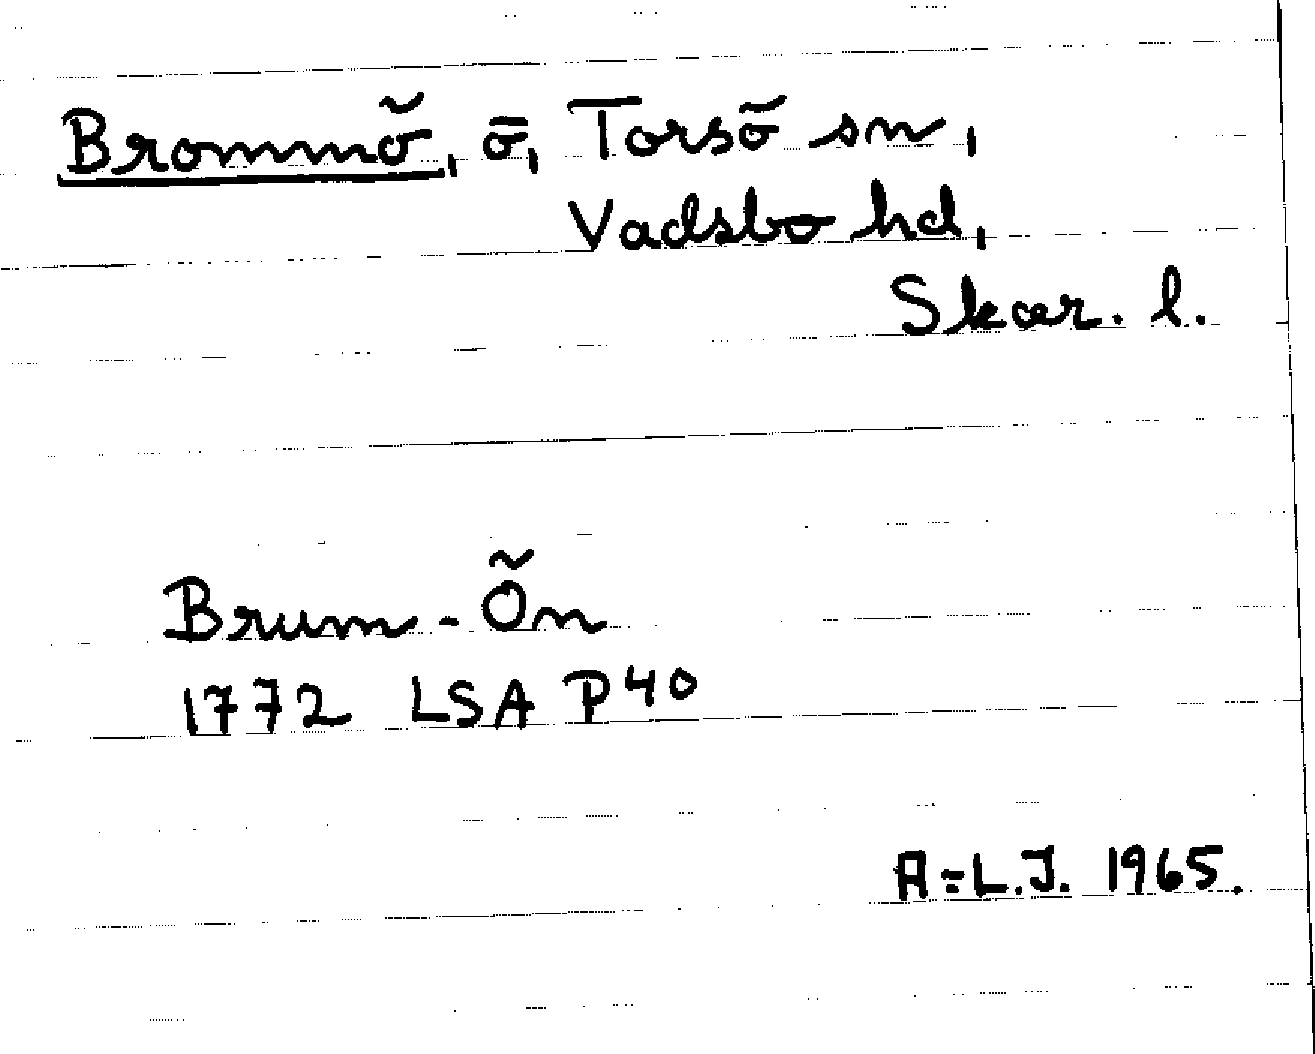 Brommö, ö, Torsö sn,
Vadsbo hd,
Skar. l.
Brum-Ön
1772 LSA P40
A-L.J. 1965.